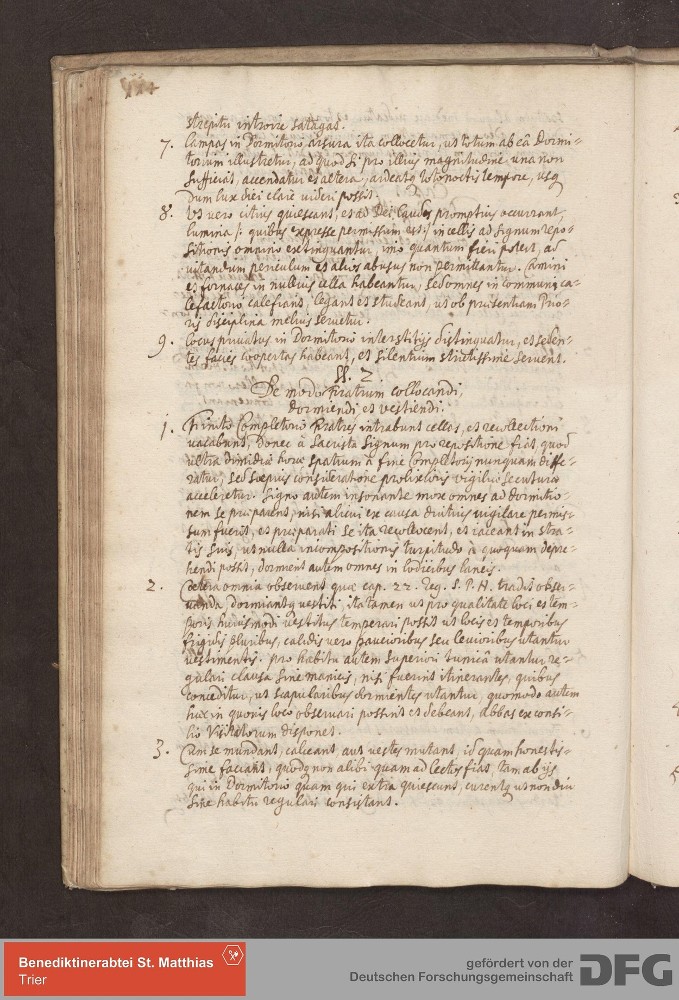 124
strepitu introire satagas.
7. Lampas in Dormitorio arsura ita collocetur, ut totum ab eâ Dormi-
torium illustretur, ad quod si pro illius magnitudine una non
sufficiat, accendatur et altera, ardeatq totonoctis tempore, usq
dum lux diei clare videri possit.
8. Ut vero citius quiescant, et ad Dei laudes promptius occurrant,
lumina /: quibus expresse permissum est :/ in cellis ad signum repo-
sitionis omnino extinguantur, imo quantum fieri potest, ad
vitandum periculum et alios abusus non permittantur. Camini
et fornaces in nullius cella habeantur, sed omnes in communi ca-
lefactorio calefiant, legant et studeant, ut ob praesentiam Prio-
ris disciplina melius servetur.
9. Locus privatus in Dormitorio interstitijs distinguatur, et seden-
tes facies coopertas habeant, et silentium strictissime servent.
§§. 2.
De modo Fratrum collocandi,
dormiendi et vestiendi.
1. Finito Completorio Fratres intrabunt cellas, et recollectioni
vacabunt, donec à Sacrista signum pro repositione fiat quod
ultra dimidiae horae spatium à fine Completorij nunquam diffe-
ratur, sed saepius consideratione prolixioris vigiliae secuturae
acceleretur. Signo autem insonante mox omnes ad dormitio-
nem se praeparent, nisi alicui ex causa diutius vigilare permis-
sum fuerit, et praeparati se ita recollocent, et iaceant in stra-
tis suis, ut nulla incompositionis turpitudo à quoquam depre-
hendi possit, dormient autem omnes in lodicibus laneis.
2. Caetera omnia observent quae cap. 22. Reg. S. P. N. tradit obser-
vanda, dormiantq vestiti, ita tamen ut pro qualitate loci et tem-
poris huiusmodi vestitus temperari possit ut locis et temporibus
frigidis pluribus, calidis vero paucioribus seu levioribus utantur
vestimentis. pro habitu autem superiori tunicâ utantur re-
gulari clausa sine manicis, nisi fuerint itinerantes, quibus
conceditur, ut scapularibus dormientes utantur, quomodo autem
haec in quovis loco observari possint et debeant, abbas ex consi-
lio Visitatorum disponet.
3. Cum se mundant, calceant, aut vestes mutant, id quam honestis-
sime faciant, quodq non alibi quam ad lectos fiat, tam ab ijs
qui in Dormitorio quam qui extra quiescunt, curentq ut non diu
sine habitu regulari consistant.
Benediktinerabtei St. Matthias
Trier
gefördert von der
Deutschen Forschungsgemeinschaft
DFG